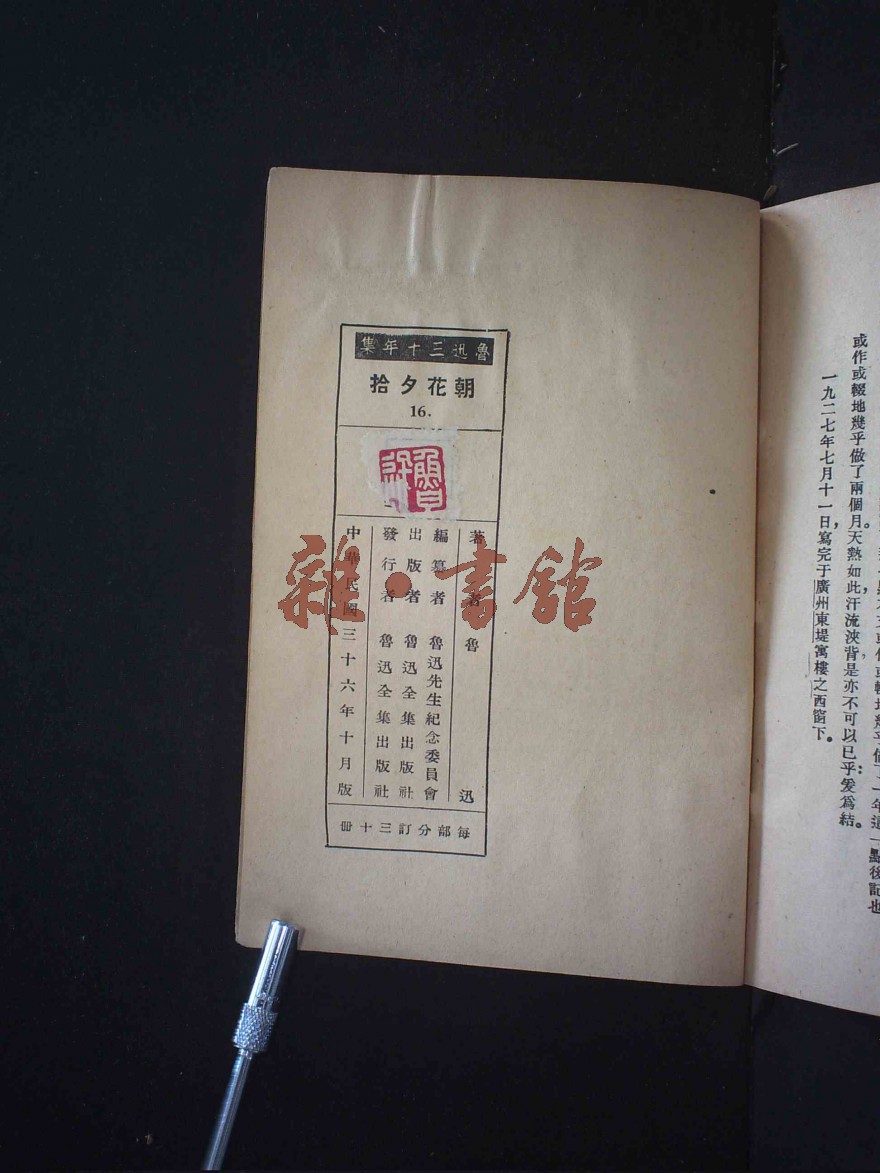 魯迅三十年集
朝花夕拾
16.
魯迅
著者 魯迅
編纂者 魯迅先生紀念委員會
出版者 魯迅全集出版社
發行者 魯迅全集出版社
中華民國三十六年十月版
每部分訂三十冊
雜·書館
或作或輟地幾乎做了兩個月。天熱如此，汗流浹背，是亦不可以已乎：爰爲結。
一九二七年七月十一日，寫完于廣州東堤寓樓之西窗下。